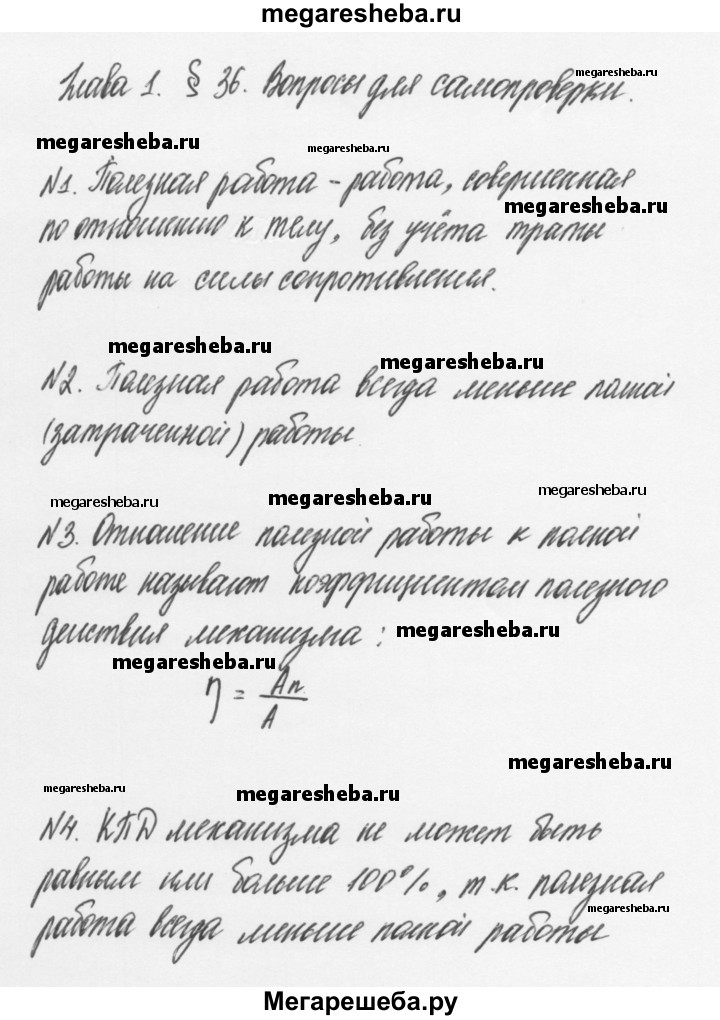 megaresheba.ru
Глава 1. § 36. Вопросы для самопроверки.
megaresheba.ru
megaresheba.ru
megaresheba.ru
№1. Полезная работа - работа, совершенная
megaresheba.ru
по отношению к телу, без учёта траты
работы на силы сопротивления.
megaresheba.ru
megaresheba.ru
№2. Полезная работа всегда меньше полной
(затраченной) работы
megaresheba.ru
megaresheba.ru
megaresheba.ru
№3. Отношение полезной работы к полной
работе называют коэффициентом полезного
действия механизма:
megaresheba.ru
megaresheba.ru
η = Aп / A
megaresheba.ru
megaresheba.ru
megaresheba.ru
№4. КПД механизма не может быть
равным или больше 100%, т.к. полезная
megaresheba.ru
работа всегда меньше полной работы
Мегарешеба.ру